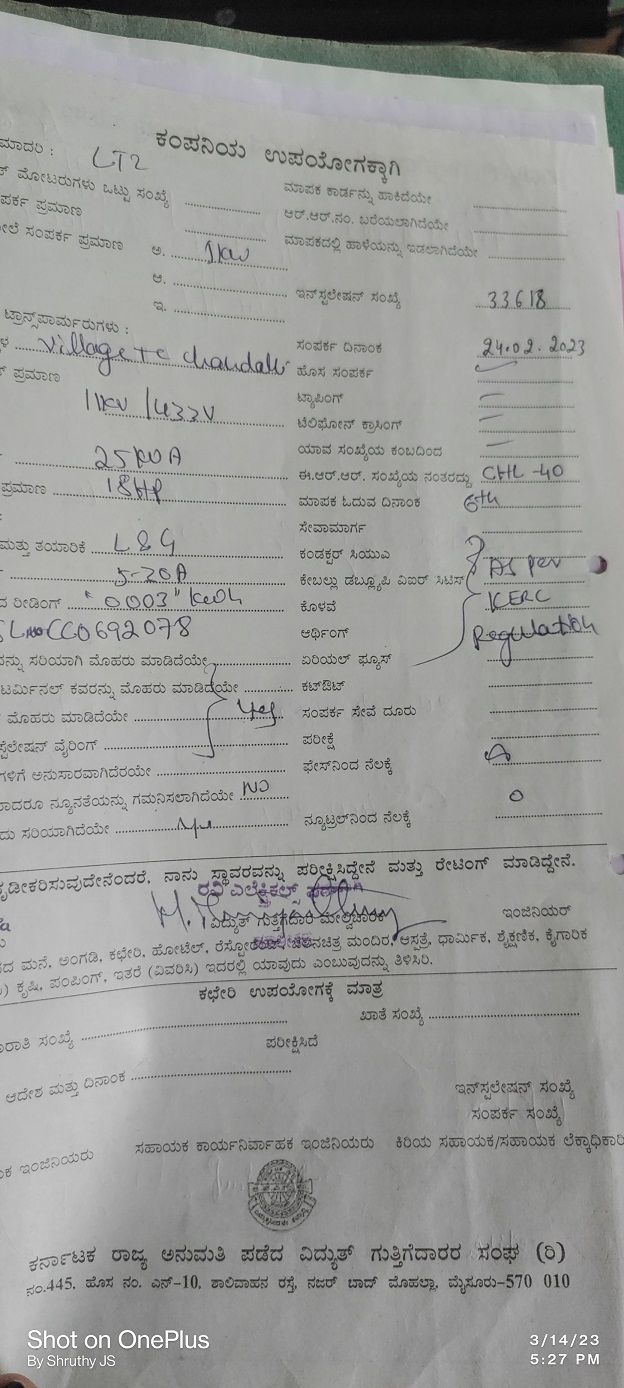 ಕಂಪನಿಯ ಉಪಯೋಗಕ್ಕಾಗಿ
ಮಾದರಿ : LT2
ಮೋಟರುಗಳು ಒಟ್ಟು ಸಂಖ್ಯೆ ಮಾಪಕ ಕಾರ್ಡನ್ನು ಹಾಕಿದೆಯೇ
ಪರ್ಕ ಪ್ರಮಾಣ ಆರ್.ಆರ್.ನಂ. ಬರೆಯಲಾಗಿದೆಯೇ
ಲೆ ಸಂಪರ್ಕ ಪ್ರಮಾಣ ಅ. 1kw ಮಾಪಕದಲ್ಲಿ ಹಾಳೆಯನ್ನು ಇಡಲಾಗಿದೆಯೇ
ಆ.
ಇ. ಇನ್‌ಸ್ಟಲೇಷನ್ ಸಂಖ್ಯೆ 33618
ಟ್ರಾನ್ಸ್‌ಪಾರ್ಮರುಗಳು :
Village tc chandalli ಸಂಪರ್ಕ ದಿನಾಂಕ 24.02.2023
ಪ್ರಮಾಣ ಹೊಸ ಸಂಪರ್ಕ
11kv/433V ಟ್ಯಾಪಿಂಗ್ –
ಟೆಲಿಫೋನ್ ಕ್ರಾಸಿಂಗ್ –
ಯಾವ ಸಂಖ್ಯೆಯ ಕಂಬದಿಂದ –
25KVA ಈ.ಆರ್.ಆರ್. ಸಂಖ್ಯೆಯ ನಂತರದ್ದು CHL-40
ಪ್ರಮಾಣ 18HP ಮಾಪಕ ಓದುವ ದಿನಾಂಕ 6th
ಸೇವಾಮಾರ್ಗ
ಮತ್ತು ತಯಾರಿಕೆ L&G ಕಂಡಕ್ಟರ್ ಸಿಯುಎ
5-20A ಕೇಬಲ್ಲು ಡಬ್ಲ್ಯೂಪಿ ಏಐರ್ ಸಿಟಿಸ್ As per
ದ ರೀಡಿಂಗ್ "0003" kwh ಕೊಳವೆ KERC
SLNo CC0692078 ಆರ್ಥಿಂಗ್ Regulation
ನನ್ನು ಸರಿಯಾಗಿ ಮೊಹರು ಮಾಡಿದೆಯೇ ಏರಿಯಲ್ ಫ್ಯೂಸ್
ಟರ್ಮಿನಲ್ ಕವರನ್ನು ಮೊಹರು ಮಾಡಿದೆಯೇ ಕಟ್‌ಔಟ್
ಮೊಹರು ಮಾಡಿದೆಯೇ Yes ಸಂಪರ್ಕ ಸೇವೆ ದೂರು
ಸ್ಟಲೇಷನ್ ವೈರಿಂಗ್ ಪರೀಕ್ಷೆ
ಗಳಿಗೆ ಅನುಸಾರವಾಗಿದೆರಯೇ ಫೇಸ್‌ನಿಂದ ನೆಲಕ್ಕೆ
ಾದರೂ ನ್ಯೂನತೆಯನ್ನು ಗಮನಿಸಲಾಗಿದೆಯೇ NO
ದು ಸರಿಯಾಗಿದೆಯೇ ನ್ಯೂಟ್ರಲ್‌ನಿಂದ ನೆಲಕ್ಕೆ 0
ೃಡೀಕರಿಸುವುದೇನೆಂದರೆ, ನಾನು ಸ್ಥಾವರವನ್ನು ಪರೀಕ್ಷಿಸಿದ್ದೇನೆ ಮತ್ತು ರೇಟಿಂಗ್ ಮಾಡಿದ್ದೇನೆ.
ರವಿ ಎಲೆಕ್ಟ್ರಿಕಲ್ಸ್
ವಿದ್ಯುತ್ ಗುತ್ತಿಗೆದಾರ ಮೇಲ್ವಿಚಾರಕ ಇಂಜಿನಿಯರ್
ದ ಮನೆ, ಅಂಗಡಿ, ಕಛೇರಿ, ಹೋಟೆಲ್, ರೆಸ್ಟೋರೆಂಟ್, ಚಲನಚಿತ್ರ ಮಂದಿರ, ಆಸ್ಪತ್ರೆ, ಧಾರ್ಮಿಕ, ಶೈಕ್ಷಣಿಕ, ಕೈಗಾರಿಕ
) ಕೃಷಿ, ಪಂಪಿಂಗ್, ಇತರೆ (ವಿವರಿಸಿ) ಇದರಲ್ಲಿ ಯಾವುದು ಎಂಬುವುದನ್ನು ತಿಳಿಸಿರಿ.
ಕಛೇರಿ ಉಪಯೋಗಕ್ಕೆ ಮಾತ್ರ
ರಾತಿ ಸಂಖ್ಯೆ ಖಾತೆ ಸಂಖ್ಯೆ
ಪರೀಕ್ಷಿಸಿದೆ
ಆದೇಶ ಮತ್ತು ದಿನಾಂಕ
ಇನ್‌ಸ್ಟಲೇಷನ್ ಸಂಖ್ಯೆ
ಸಂಪರ್ಕ ಸಂಖ್ಯೆ
ಕ ಇಂಜಿನಿಯರು ಸಹಾಯಕ ಕಾರ್ಯನಿರ್ವಾಹಕ ಇಂಜಿನಿಯರು ಕಿರಿಯ ಸಹಾಯಕ/ಸಹಾಯಕ ಲೆಕ್ಕಾಧಿಕಾರಿ
ಕರ್ನಾಟಕ ರಾಜ್ಯ ಅನುಮತಿ ಪಡೆದ ವಿದ್ಯುತ್ ಗುತ್ತಿಗೆದಾರರ ಸಂಘ (ರಿ)
ನಂ.445, ಹೊಸ ನಂ. ಎನ್-10, ಶಾಲಿವಾಹನ ರಸ್ತೆ, ನಜರ್ ಬಾದ್ ಮೊಹಲ್ಲಾ, ಮೈಸೂರು-570 010
Shot on OnePlus
By Shruthy JS
3/14/23
5:27 PM